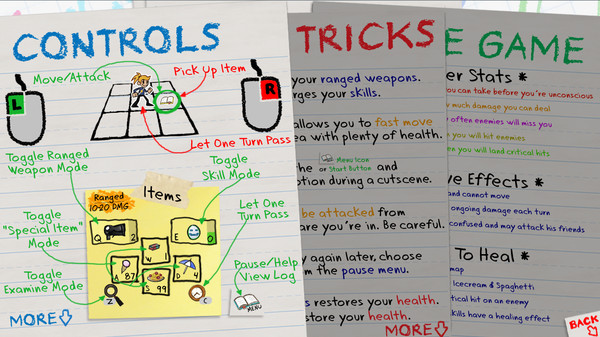 CONTROLS
Move/Attack
Pick Up Item
L
R
Let One Turn Pass
Toggle Ranged
Weapon Mode
Toggle
Skill Mode
Items
Ranged
10-20 DMG.
Q 2
E 0
W 1
A 87
D 4
S 99
Z
C
Toggle
"Special Item"
Mode
Let One
Turn Pass
Toggle
Examine Mode
Pause/Help
View Log
MENU
MORE
TRICKS
your ranged weapons.
rges your skills.
allows you to fast move
ea with plenty of health.
Menu Icon
or Start Button
and
otion during a cutscene.
be attacked from
are you're in. Be careful.
y again later, choose
m the pause menu.
s restores your health.
store your health.
MORE
E GAME
er Stats *
you can take before you're unconscious
much damage you can deal
often enemies will miss you
n you will hit enemies
en you will land critical hits
ve Effects *
and cannot move
ongoing damage each turn
confused and may attack his friends
To Heal *
map
Icecream & Spaghetti
tical hit on an enemy
skills have a healing effect
BACK